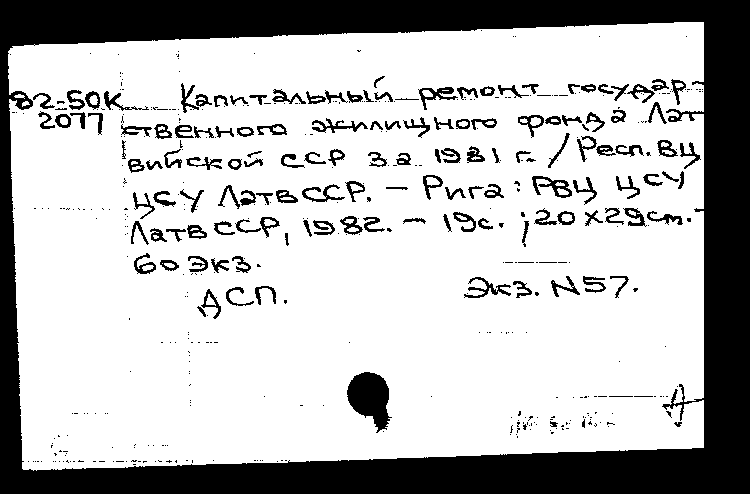 82-50К Капитальный ремонт государ-
2077 ственного жилищного фонда Лат
вийской ССР за 1981 г. / Респ. ВЦ
ЦСУ ЛатвССР. – Рига : РВЦ ЦСУ
ЛатвССР, 1982. – 19с. ; 20 x 29 см. –
60 экз.
ДСП. Экз. N57.